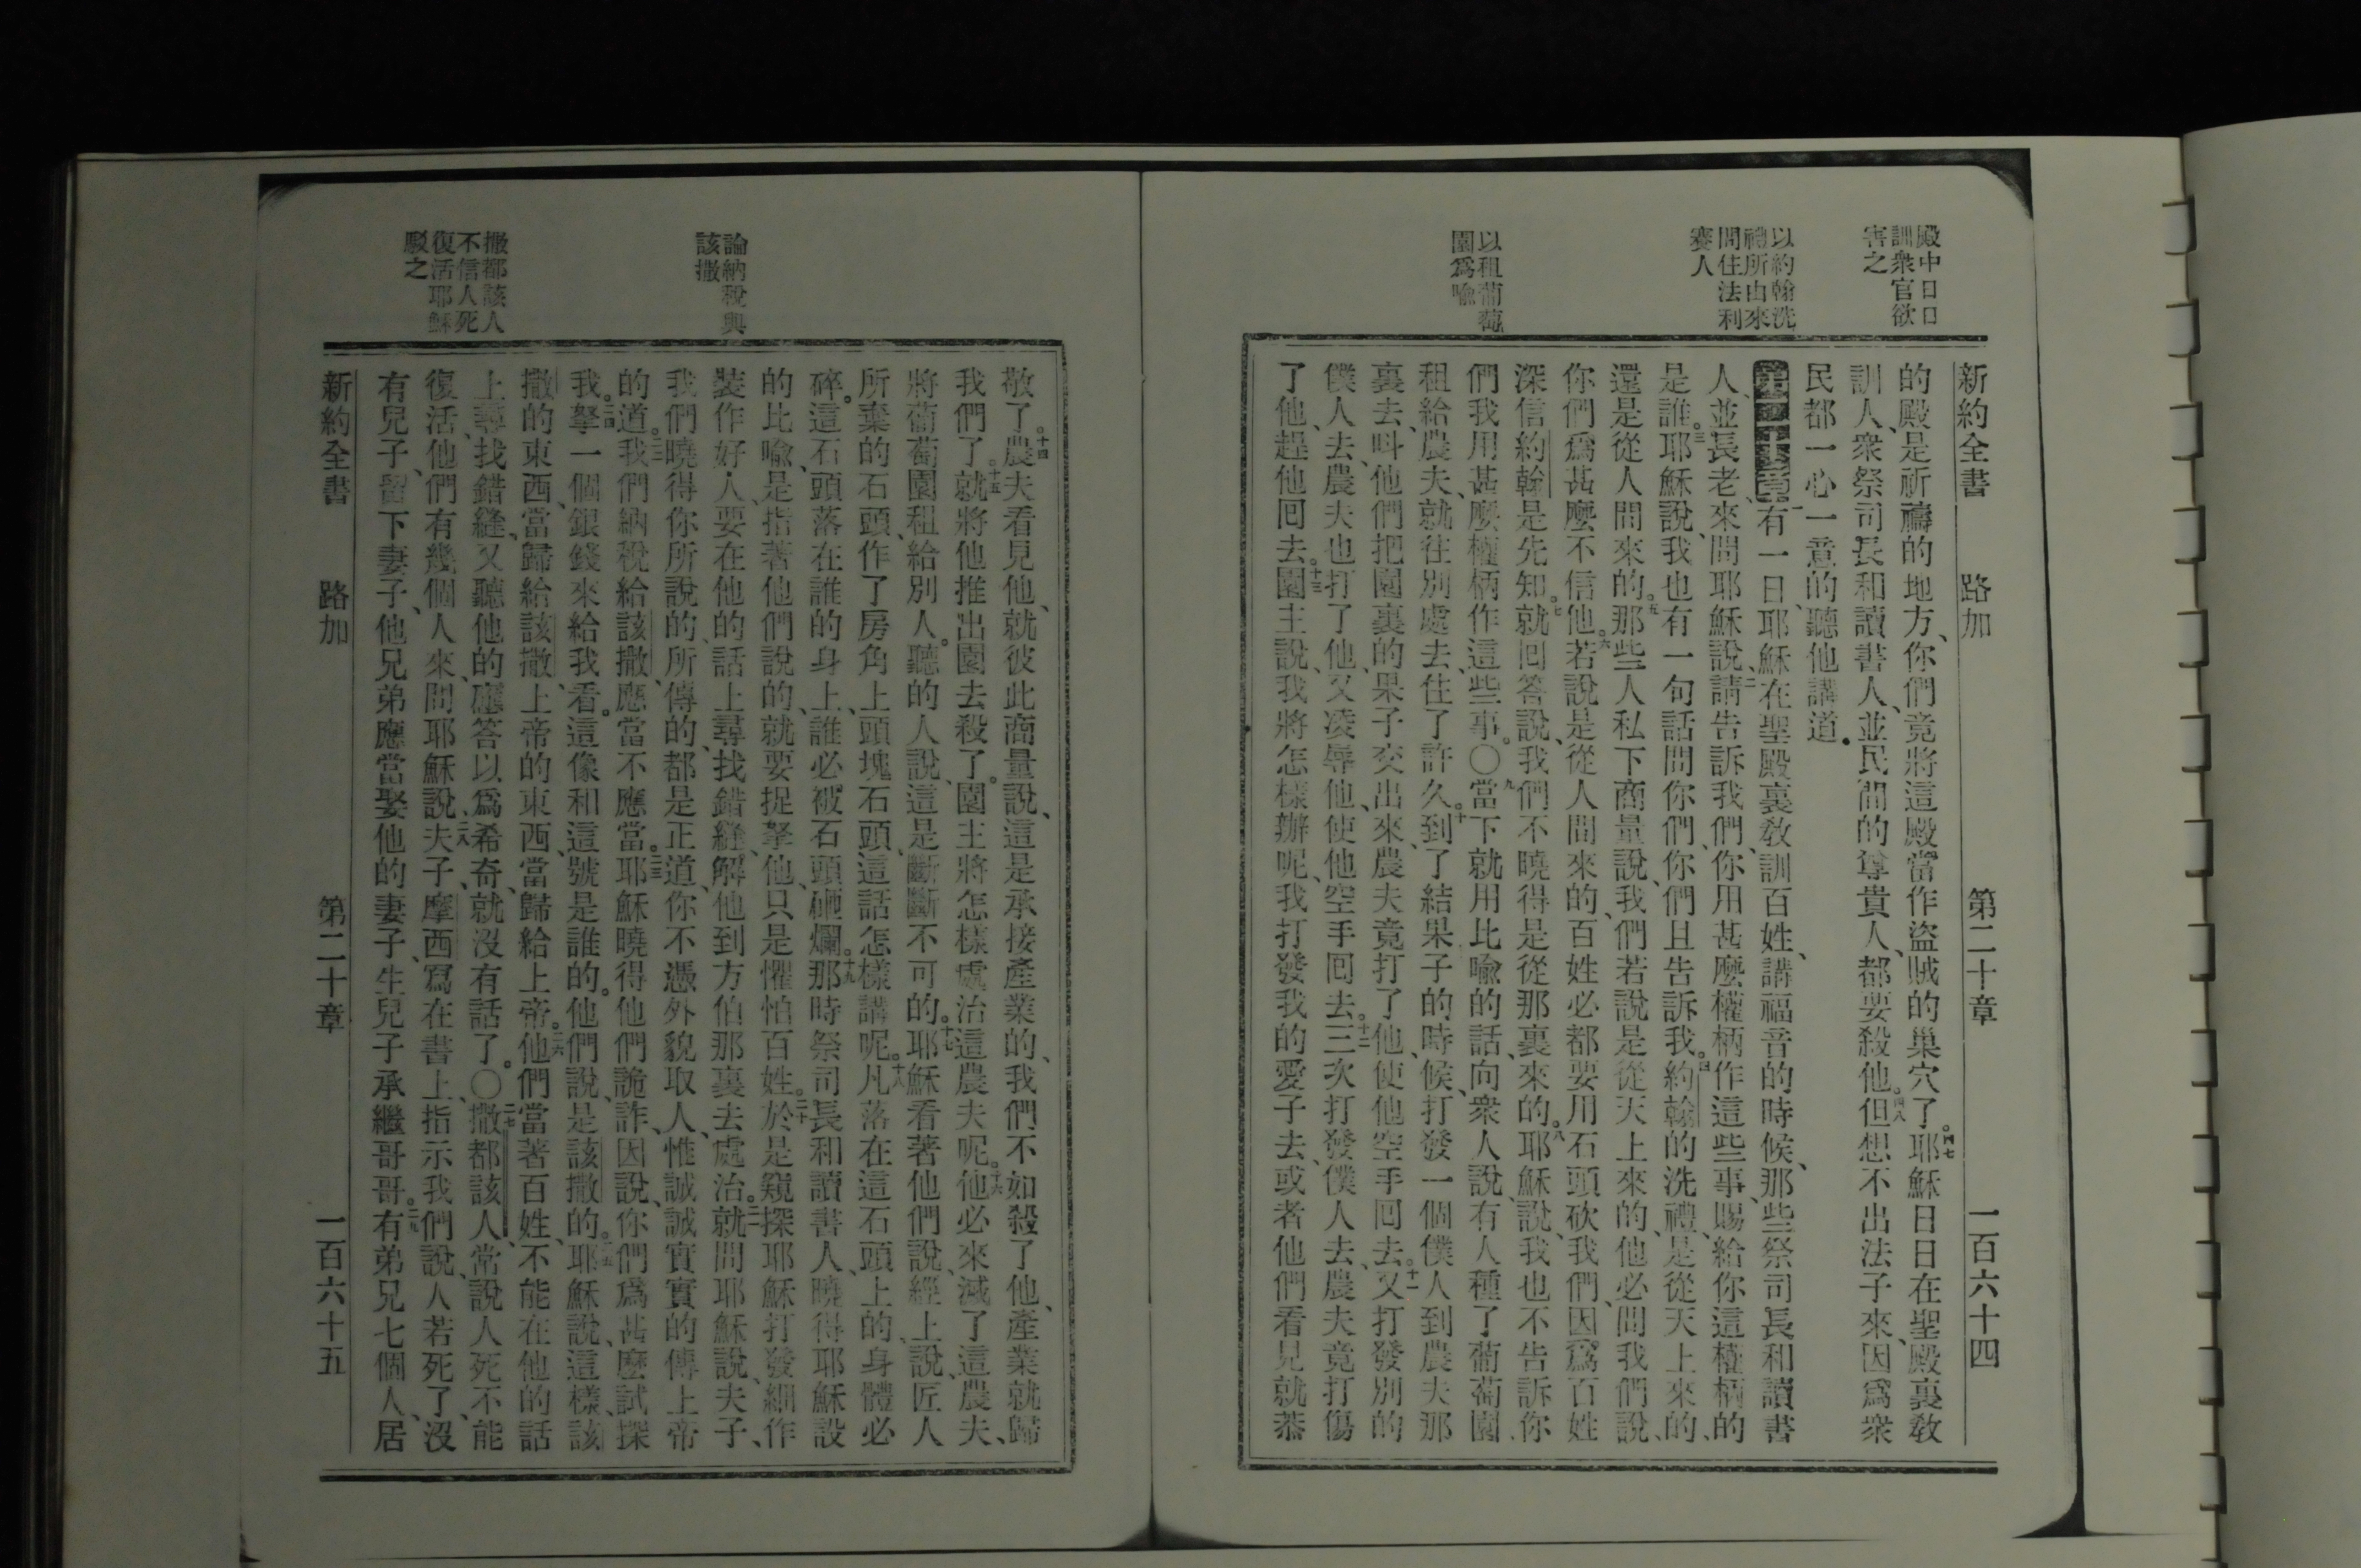 殿中日日
訓衆官欲
害之
以約翰洗
禮所由來
問住法利
賽人
以租葡萄
園爲喻
新約全書 路加 第二十章 一百六十四
的殿、是祈禱的地方、你們竟將這殿當作盜賊的巢穴了。四七耶穌日日在聖殿裏敎
訓人、衆祭司長和讀書人、並民間的尊貴人、都要殺他。四八但想不出法子來、因爲衆
民都一心一意的聽他講道。
第二十章一有一日、耶穌在聖殿裏敎訓百姓、講福音的時候、那些祭司長和讀書
人、並長老來、問耶穌說、二請告訴我們、你用甚麼權柄作這些事、賜給你這權柄的
是誰。三耶穌說、我也有一句話問你們、你們且告訴我。四約翰的洗禮、是從天上來的、
還是從人間來的。五那些人私下商量說、我們若說是從天上來的、他必問我們說、
你們爲甚麼不信他。六若說是從人間來的、百姓必都要用石頭砍我們、因爲百姓
深信約翰是先知。七就回答說、我們不曉得是從那裏來的。八耶穌說、我也不告訴你
們我用甚麼權柄作這些事。〇九當下就用比喻的話、向衆人說、有人種了葡萄園、
租給農夫、就往別處去住了許久。十到了結果子的時候、打發一個僕人到農夫那
裏去、呌他們把園裏的果子交出來、農夫竟打了他、使他空手回去。十一又打發別的
僕人去、農夫也打了他、又凌辱他、使他空手回去。十二三次打發僕人去、農夫竟打傷
了他、趕他回去。十三園主說、我將怎樣辦呢、我打發我的愛子去、或者他們看見就恭
論納稅與
該撒
撒都該人
不信人死
復活耶穌
駁之
敬了。十四農夫看見他、就彼此商量說、這是承接產業的、我們不如殺了他、產業就歸
我們了。十五就將他推出園去殺了。園主將怎樣處治這農夫呢。十六他必來滅了這農夫、
將葡萄園租給別人。聽的人說、這是斷斷不可的。十七耶穌看著他們說、經上說、匠人
所棄的石頭、作了房角上頭塊石頭、這話怎樣講呢。十八凡落在這石頭上的、身體必
碎。這石頭落在誰的身上、誰必被石頭砸爛。十九那時祭司長和讀書人、曉得耶穌設
的比喻、是指著他們說的、就要捉拏他、只是懼怕百姓。二十於是窺探耶穌、打發細作
裝作好人、要在他的話上尋找錯縫、解他到方伯那裏去處治。二一就問耶穌說、夫子、
我們曉得你所說的、所傳的、都是正道、你不憑外貌取人、惟誠誠實實的傳上帝
的道。二二我們納稅給該撒、應當不應當。二三耶穌曉得他們詭詐、因說、你們爲甚麼試探
我。二四拏一個銀錢來給我看。這像和這號是誰的。他們說、是該撒的。二五耶穌說、這樣、該
撒的東西、當歸給該撒、上帝的東西、當歸給上帝。二六他們當著百姓、不能在他的話
上尋找錯縫、又聽他的應答、以爲希奇、就沒有話了。〇二七撒都該人、常說人死不能
復活、他們有幾個人來、問耶穌說、二八夫子、摩西寫在書上、指示我們說、人若死了、沒
有兒子、留下妻子、他兄弟應當娶他的妻子、生兒子承繼哥哥。二九有弟兄七個人、居
新約全書 路加 第二十章 一百六十五